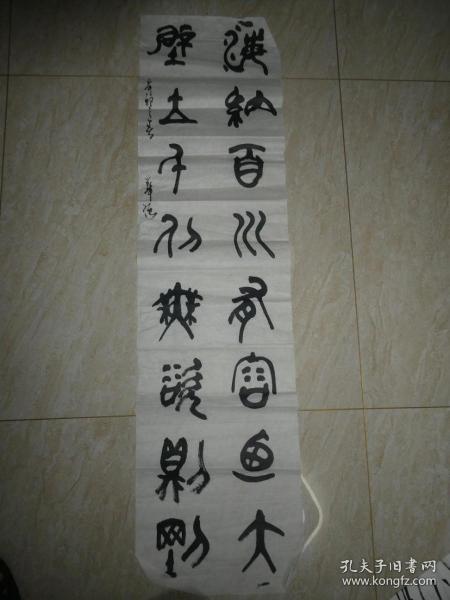 海納百川有容乃大
壁立千仞無欲則剛
孔夫子旧书网
www.kongfz.com